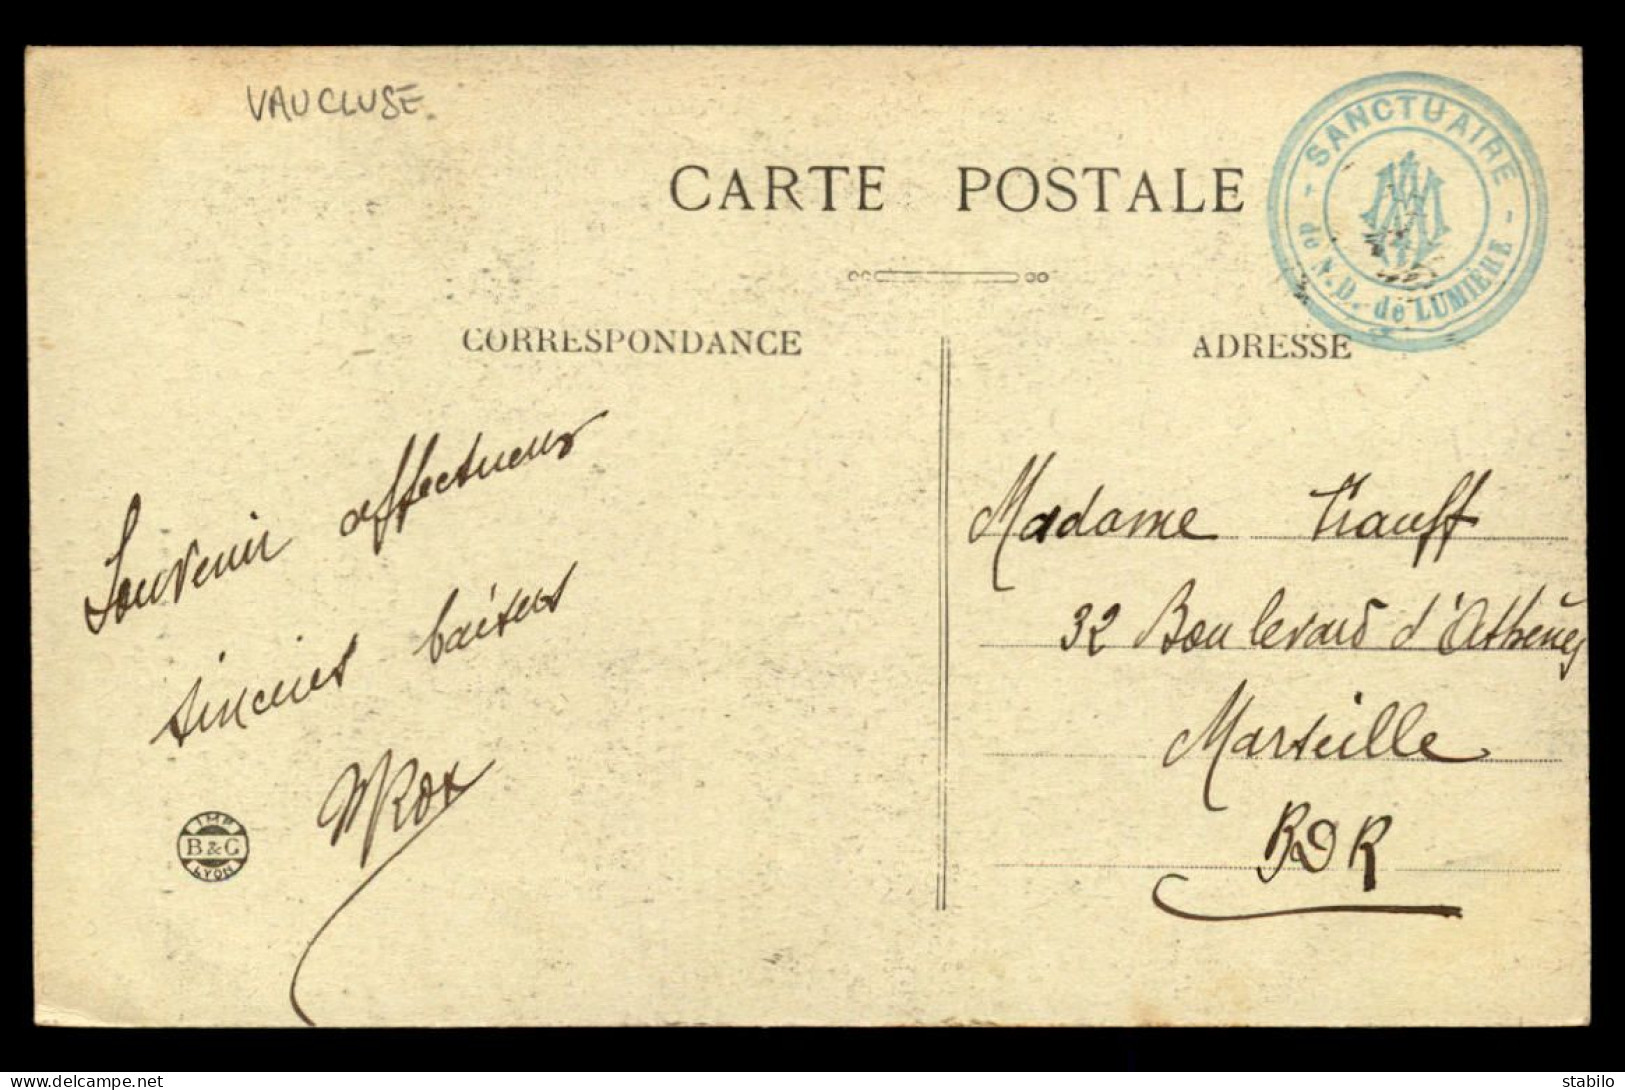 VAUCLUSE.
SANCTUAIRE
de N.D. de LUMIÈRE
CARTE POSTALE
CORRESPONDANCE
ADRESSE
Souvenir affectueux
sincères baisers
Madame
32 Boulevard d'Athènes
Marseille
BDR
IMP.
B & G
LYON
stabilo